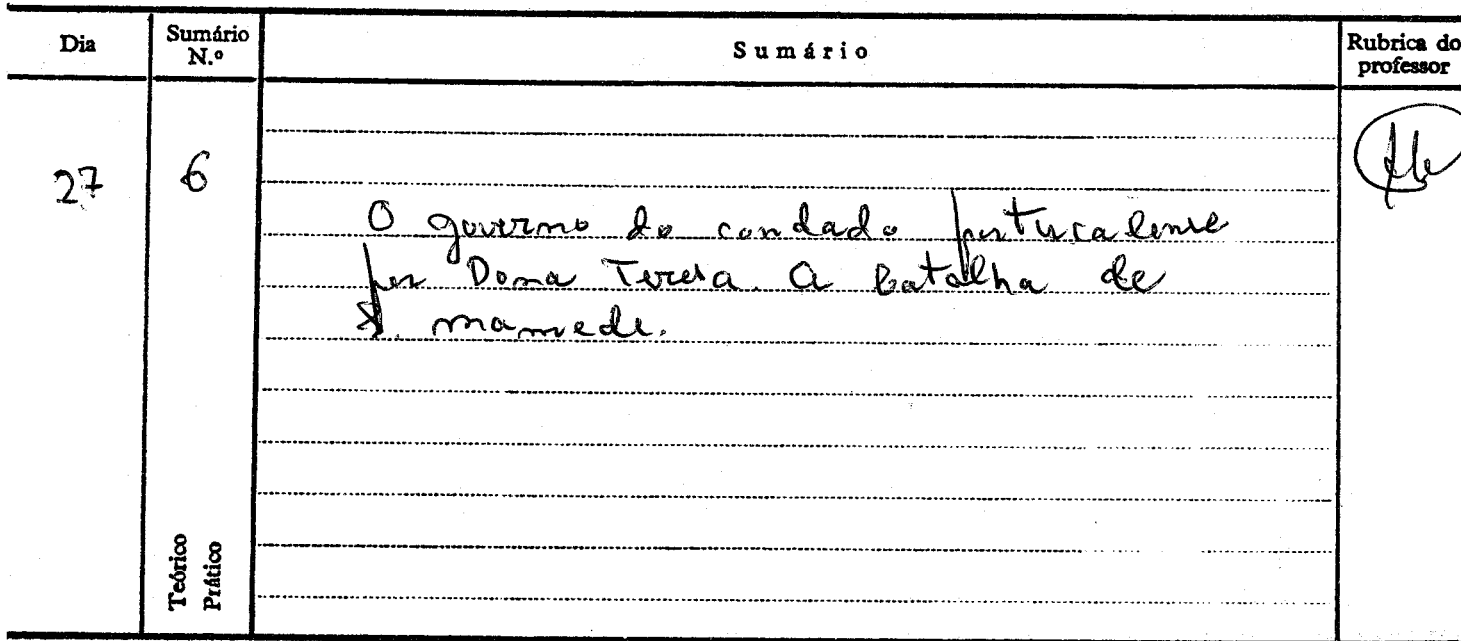 Dia
Sumário
N.º
Sumário
Rubrica do
professor
27
6
O governo do condado portucalense
por Dona Teresa. A batalha de
S. Mamede.
Teórico
Prático